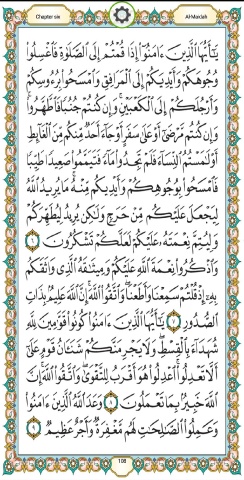 Chapter six Al-Maidah
يَٰٓأَيُّهَا ٱلَّذِينَ ءَامَنُوٓا۟ إِذَا قُمْتُمْ إِلَى ٱلصَّلَوٰةِ فَٱغْسِلُوا۟
وُجُوهَكُمْ وَأَيْدِيَكُمْ إِلَى ٱلْمَرَافِقِ وَٱمْسَحُوا۟ بِرُءُوسِكُمْ
وَأَرْجُلَكُمْ إِلَى ٱلْكَعْبَيْنِ ۚ وَإِن كُنتُمْ جُنُبًا فَٱطَّهَّرُوا۟ ۚ
وَإِن كُنتُم مَّرْضَىٰٓ أَوْ عَلَىٰ سَفَرٍ أَوْ جَآءَ أَحَدٌ مِّنكُم مِّنَ ٱلْغَآئِطِ
أَوْ لَٰمَسْتُمُ ٱلنِّسَآءَ فَلَمْ تَجِدُوا۟ مَآءً فَتَيَمَّمُوا۟ صَعِيدًا طَيِّبًا
فَٱمْسَحُوا۟ بِوُجُوهِكُمْ وَأَيْدِيكُم مِّنْهُ ۚ مَا يُرِيدُ ٱللَّهُ
لِيَجْعَلَ عَلَيْكُم مِّنْ حَرَجٍ وَلَٰكِن يُرِيدُ لِيُطَهِّرَكُمْ
وَلِيُتِمَّ نِعْمَتَهُۥ عَلَيْكُمْ لَعَلَّكُمْ تَشْكُرُونَ ٦
وَٱذْكُرُوا۟ نِعْمَةَ ٱللَّهِ عَلَيْكُمْ وَمِيثَٰقَهُ ٱلَّذِى وَاثَقَكُم
بِهِۦٓ إِذْ قُلْتُمْ سَمِعْنَا وَأَطَعْنَا ۖ وَٱتَّقُوا۟ ٱللَّهَ ۚ إِنَّ ٱللَّهَ عَلِيمٌۢ بِذَاتِ
ٱلصُّدُورِ ٧ يَٰٓأَيُّهَا ٱلَّذِينَ ءَامَنُوا۟ كُونُوا۟ قَوَّٰمِينَ لِلَّهِ
شُهَدَآءَ بِٱلْقِسْطِ ۖ وَلَا يَجْرِمَنَّكُمْ شَنَـَٔانُ قَوْمٍ عَلَىٰٓ
أَلَّا تَعْدِلُوا۟ ۚ ٱعْدِلُوا۟ هُوَ أَقْرَبُ لِلتَّقْوَىٰ ۖ وَٱتَّقُوا۟ ٱللَّهَ ۚ إِنَّ
ٱللَّهَ خَبِيرٌۢ بِمَا تَعْمَلُونَ ٨ وَعَدَ ٱللَّهُ ٱلَّذِينَ ءَامَنُوا۟
وَعَمِلُوا۟ ٱلصَّٰلِحَٰتِ ۙ لَهُم مَّغْفِرَةٌ وَأَجْرٌ عَظِيمٌ ٩
108